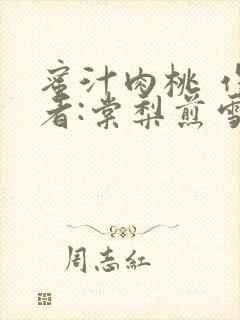 蜜汁肉桃 作
者:棠梨煎雪
周志紅